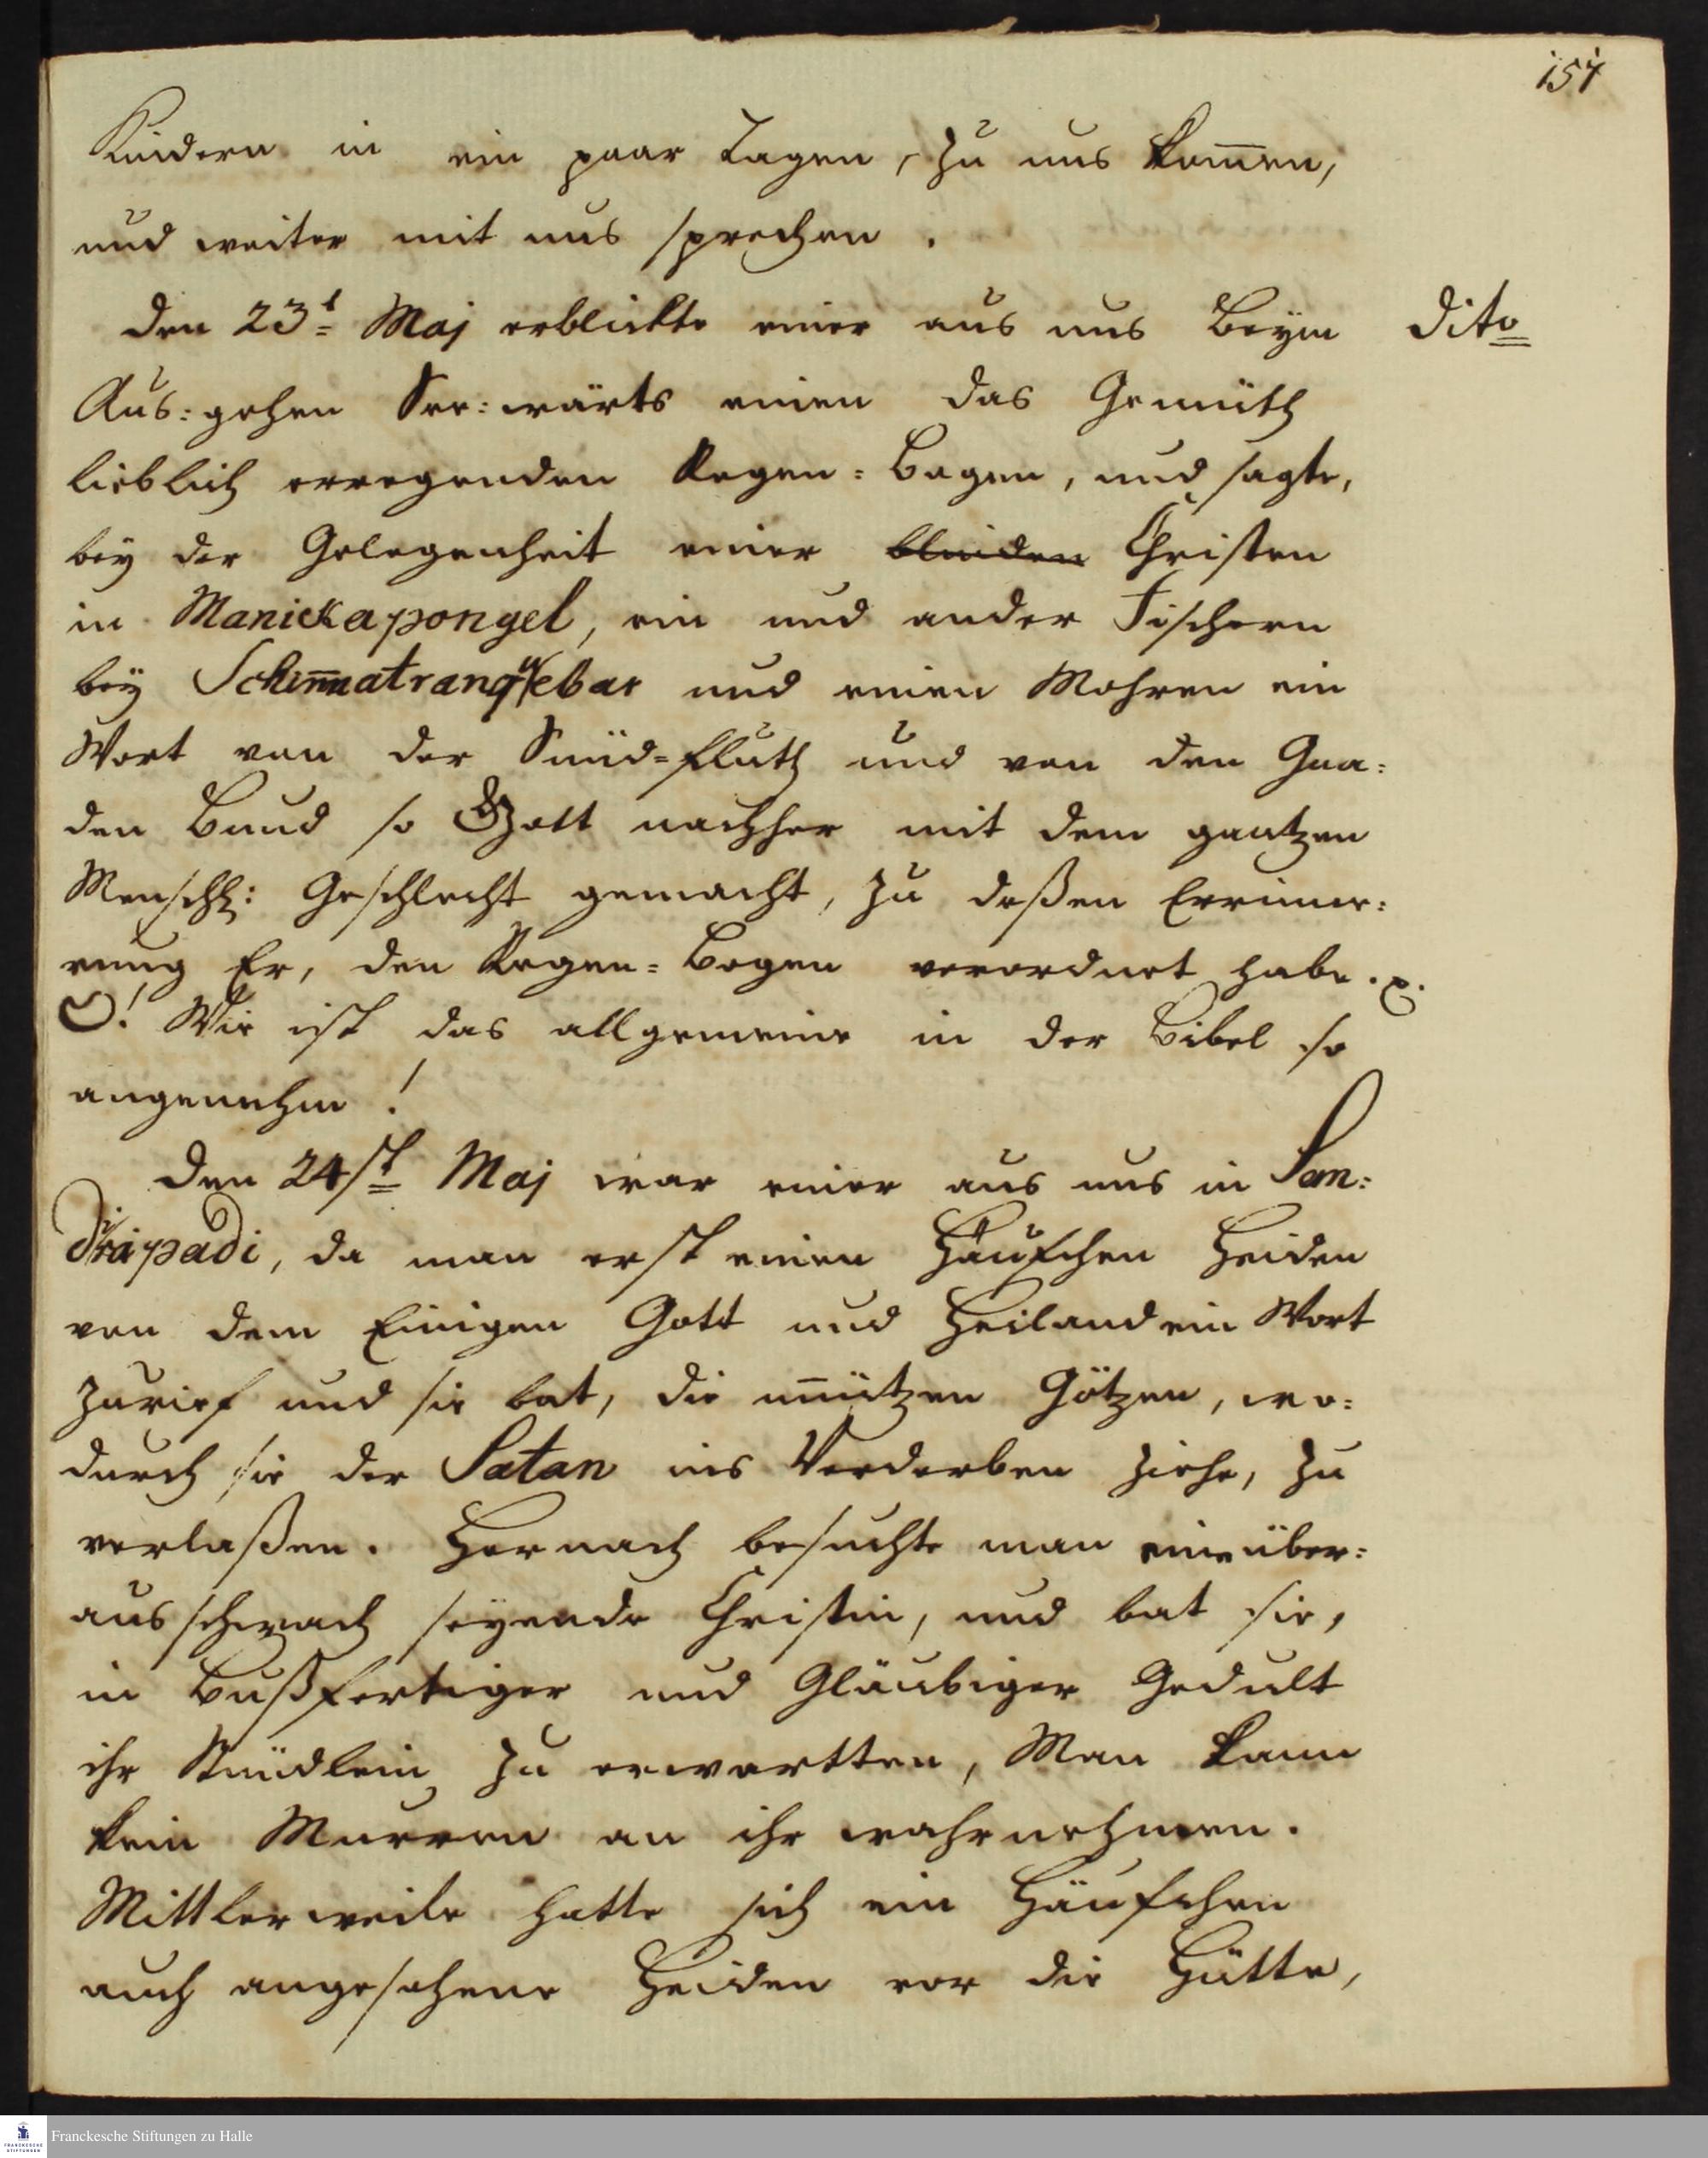 157
Kindern in ein paar Tagen, zu uns kom̄en,
und weiter mit uns sprechen.
Den 23t Maj erblickte einer aus uns Beym
Dito
Aus=gehen See=wärts einen das Gemüth
lieblich erregenden Regen=Bogen, und sagte,
bey der Gelegenheit einer blinden Christen
in Manickapongel, ein und ander Fischern
bey Schinnatrangebar und einen Mohren ein
Wort von der Sünd=fluth und von den Gna=
den Bund so Gott nachher mit dem gantzen
Menschl: Geschlecht gemacht, zu deßen Erinne=
rung Er, den Regen=Bogen verordnet habe. x.
O! Wie ist das allgemeine in der Bibel so
angenehm!
Den 24st Maj war einer aus uns in San=
dirapadi, da man erst einen Häufchen Heiden
von dem Einigen Gott und Heiland ein Wort
zurief und sie bat, die un̄ützen Götzen, wo=
durch sie der Satan ins Verderben ziehe, zu
verlaßen. Hernach besuchte man eine über=
aus schwach seyende Christin, und bat sie,
in Bußfertiger und Gläubiger Gedult
ihr Stündlein zu erwartten, Man kann
kein Murren an ihr wahrnehmen.
Mittlerweile hatte sich ein Häufchen
auch angesehene Heiden vor die Hütte,
Franckesche Stiftungen zu Halle